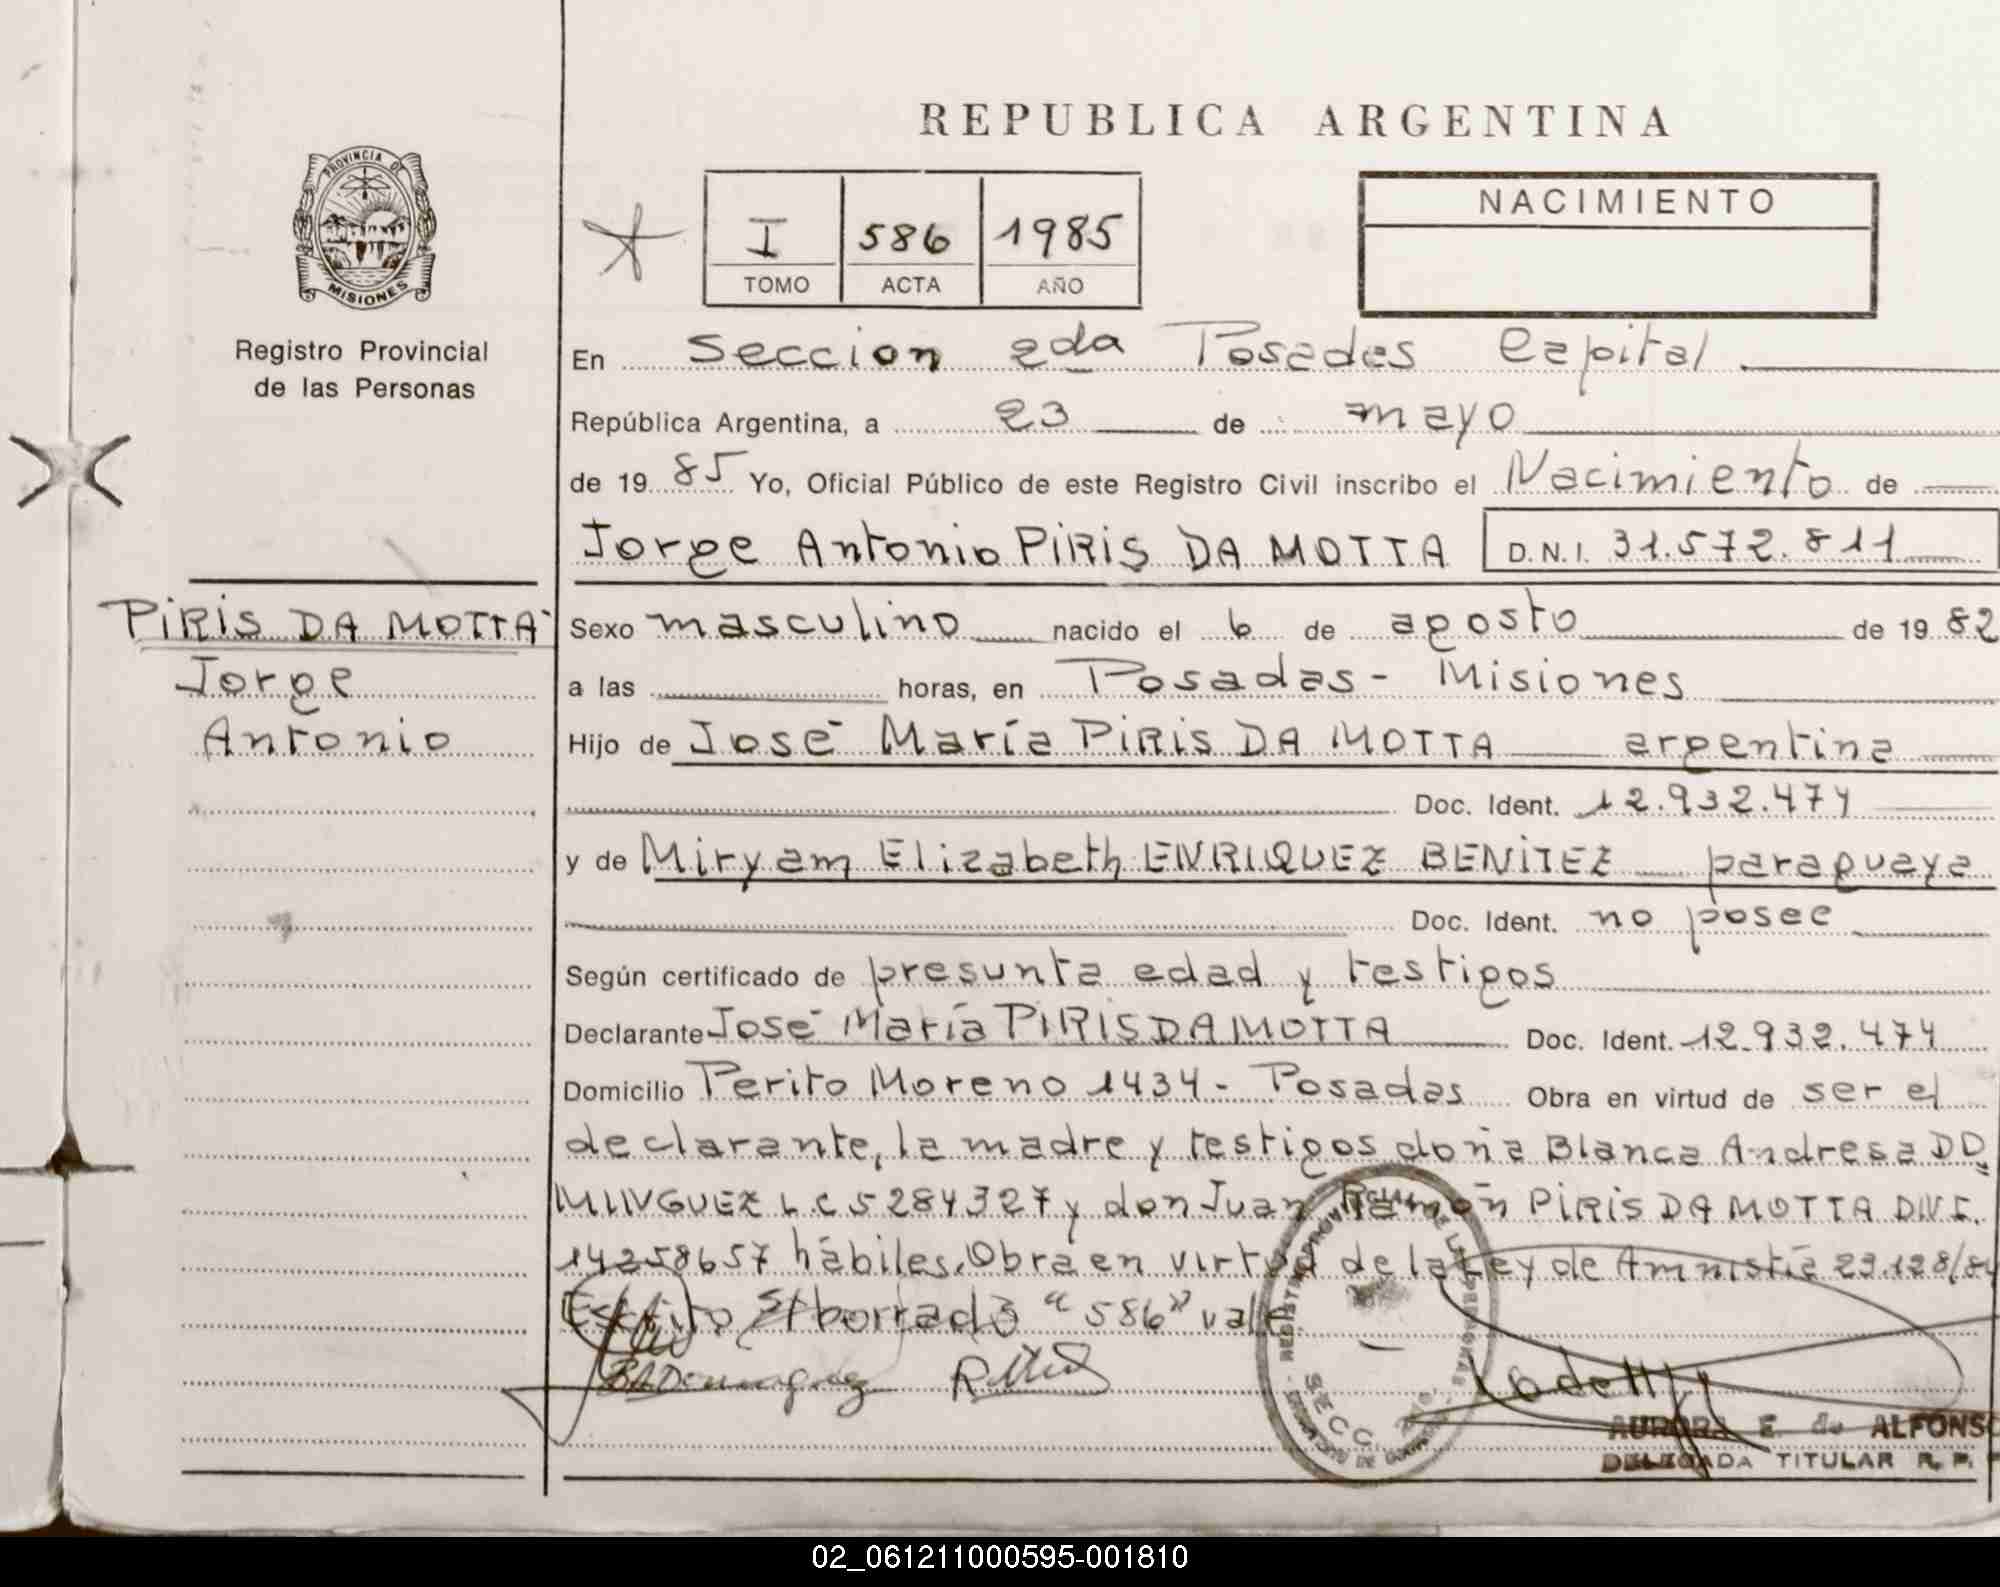 REPUBLICA ARGENTINA
PROVINCIA DE
MISIONES
Registro Provincial
de las Personas
I 586 1985
TOMO ACTA AÑO
NACIMIENTO
En Seccion 2da Posadas Capital
República Argentina, a 23 de mayo
de 1985 Yo, Oficial Público de este Registro Civil inscribo el Nacimiento de
Jorge Antonio PIRIS DA MOTTA D.N.I. 31.572.811
PIRIS DA MOTTA
Jorge
Antonio
Sexo masculino nacido el 6 de agosto de 1982
a las horas, en Posadas - Misiones
Hijo de José María PIRIS DA MOTTA argentina
Doc. Ident. 12.932.474
y de Miryam Elizabeth ENRIQUEZ BENITEZ paraguaya
Doc. Ident. no posee
Según certificado de presunta edad y testigos
Declarante José María PIRIS DA MOTTA Doc. Ident. 12.932.474
Domicilio Perito Moreno 1434 - Posadas Obra en virtud de ser el
declarante, la madre y testigos doña Blanca Andresa DO
MINGUEZ L.C 5284327 y don Juan Ramón PIRIS DA MOTTA D.N.I.
14258657 hábiles. Obra en virtud de la Ley de Amnistía 23.128/84
Escrito S/borrado "586" vale
BADominguez
SECC.
AURORA E. de ALFONS
DELEGADA TITULAR R. P.
02_061211000595-001810